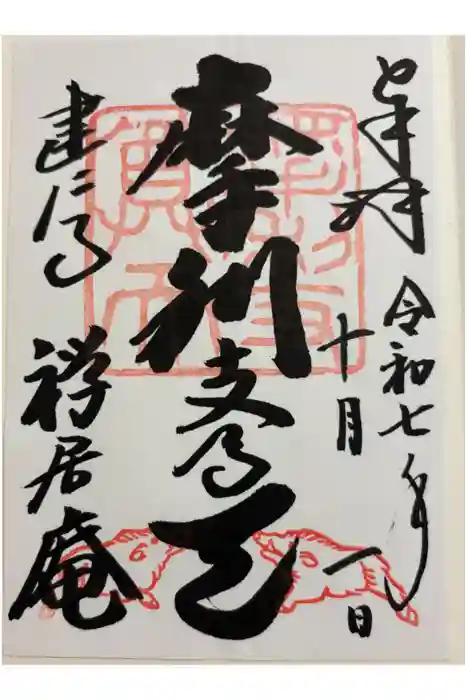 奉拝
令和七年
十月
一日
摩利支尊天
建仁寺
禅居庵